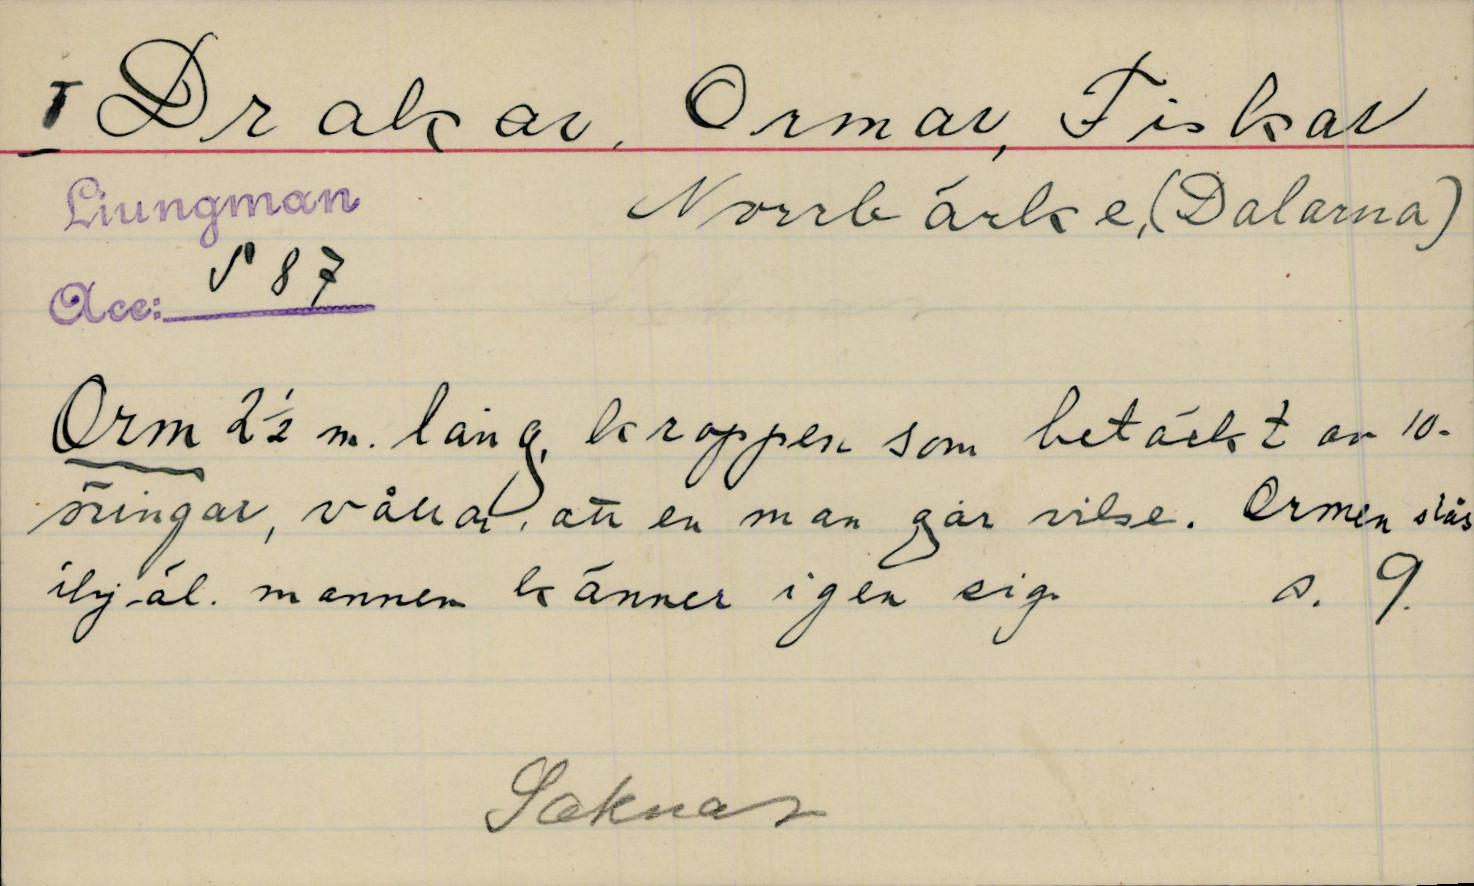 I Drakar, Ormar, Fiskar
Liungman
Norrbärke, (Dalarna)
Acc: S 87
Orm 2½ m. lång, kroppen som betäckt av 10-
öringar, vållar, att en man går vilse. Ormen slås
ihjäl. mannen känner igen sig. s. 9.
Saknas